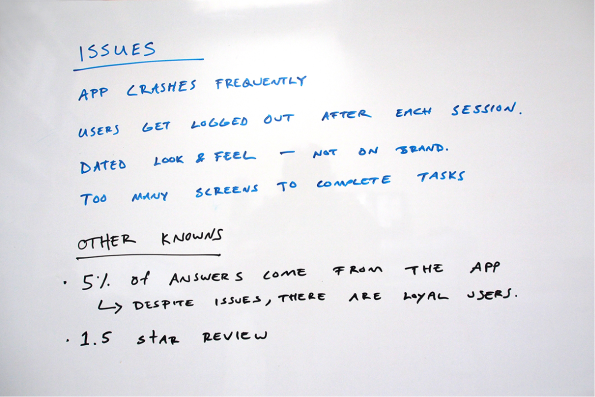 ISSUES
APP CRASHES FREQUENTLY
USERS GET LOGGED OUT AFTER EACH SESSION.
DATED LOOK & FEEL — NOT ON BRAND.
TOO MANY SCREENS TO COMPLETE TASKS
OTHER KNOWNS
• 5% of ANSWERS COME FROM THE APP
↳ DESPITE ISSUES, THERE ARE LOYAL USERS.
• 1.5 STAR REVIEW